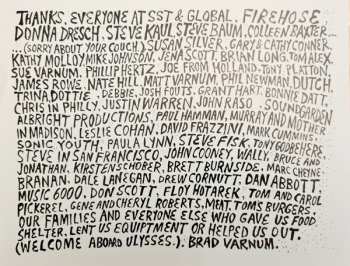 THANKS, EVERYONE AT SST & GLOBAL, FIREHOSE,
DONNA DRESCH, STEVE KAUL, STEVE BAUM, COLLEEN BAXTER...
...(SORRY ABOUT YOUR COUCH,) SUSAN SILVER, GARY & CATHY CONNER,
KATHY MOLLOY, MIKE JOHNSON, JENA SCOTT, BRIAN LONG, TOM, ALEX,
SUE VARNUM, PHILLIP HERTZ, JOE FROM HOLLAND, TONY PLATON,
JAMES ROWE, NATE HILL, MATT VARNUM, PHIL NEWMAN, DUTCH,
TRINA DOTTIE, DEBBIE, JOSH FOUTS, GRANT HART, BONNIE DATT,
CHRIS IN PHILLY, JUSTIN WARREN, JOHN RASO, SOUNDGARDEN
ALBRIGHT PRODUCTIONS, PAUL HAMMAN, MURRAY AND MOTHER
IN MADISON, LESLIE COHAN, DAVID FRAZZINI, MARK CUMMINGS,
SONIC YOUTH, PAULA LYNN, STEVE FISK, TONY GODBEHERE,
STEVE IN SAN FRANCISCO, JOHN COONEY, WALLY, BRUCE AND
JONATHAN, KIRSTEN SCHOBER, BRETT BURNSIDE, MARC CHEYNE-
BRANAN, DALE LANEGAN, DREW CORNUTT, DAN ABBOTT,
MUSIC 6000, DON SCOTT, FLOY HOTAREK, TOM AND CAROL
PICKEREL, GENE AND CHERYL ROBERTS, MEAT, TOM'S BURGERS
OUR FAMILIES AND EVERYONE ELSE WHO GAVE US FOOD
SHELTER, LENT US EQUIPTMENT OR HELPED US OUT.
(WELCOME ABOARD ULYSSES.) BRAD VARNUM.